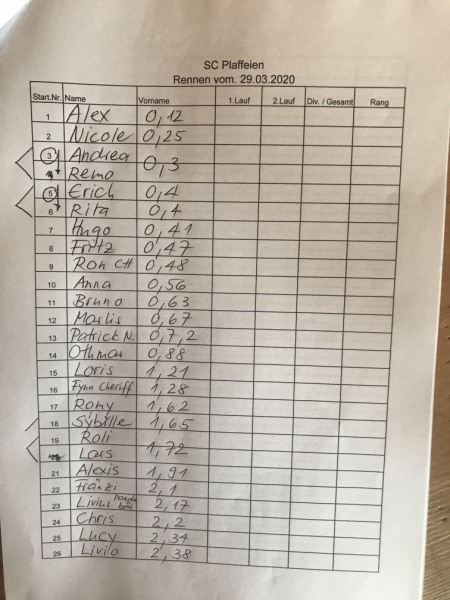 SC Plaffeien
Rennen vom. 29.03.2020
Start.Nr. Name Vorname 1.Lauf 2.Lauf Div. / Gesamt Rang
1 Alex 0,12
2 Nicole 0,25
3 Andrea 0,3
Remo
5 Erich 0,4
6 Rita 0,4
7 Hugo 0,41
8 Fritz 0,47
9 Ron CH 0,48
10 Anna 0,56
11 Bruno 0,63
12 Marlis 0,67
13 Patrick N. 0,7,2
14 Othmar 0,88
15 Loris 1,21
16 Fynn Cheriff 1,28
17 Romy 1,62
18 Sybille 1,65
19 Roli 1,72
Lars
21 Alexis 1,91
22 Fränzi 2,1
23 Livius Panda bär 2,17
24 Chris 2,2
25 Lucy 2,34
26 Livilo 2,38